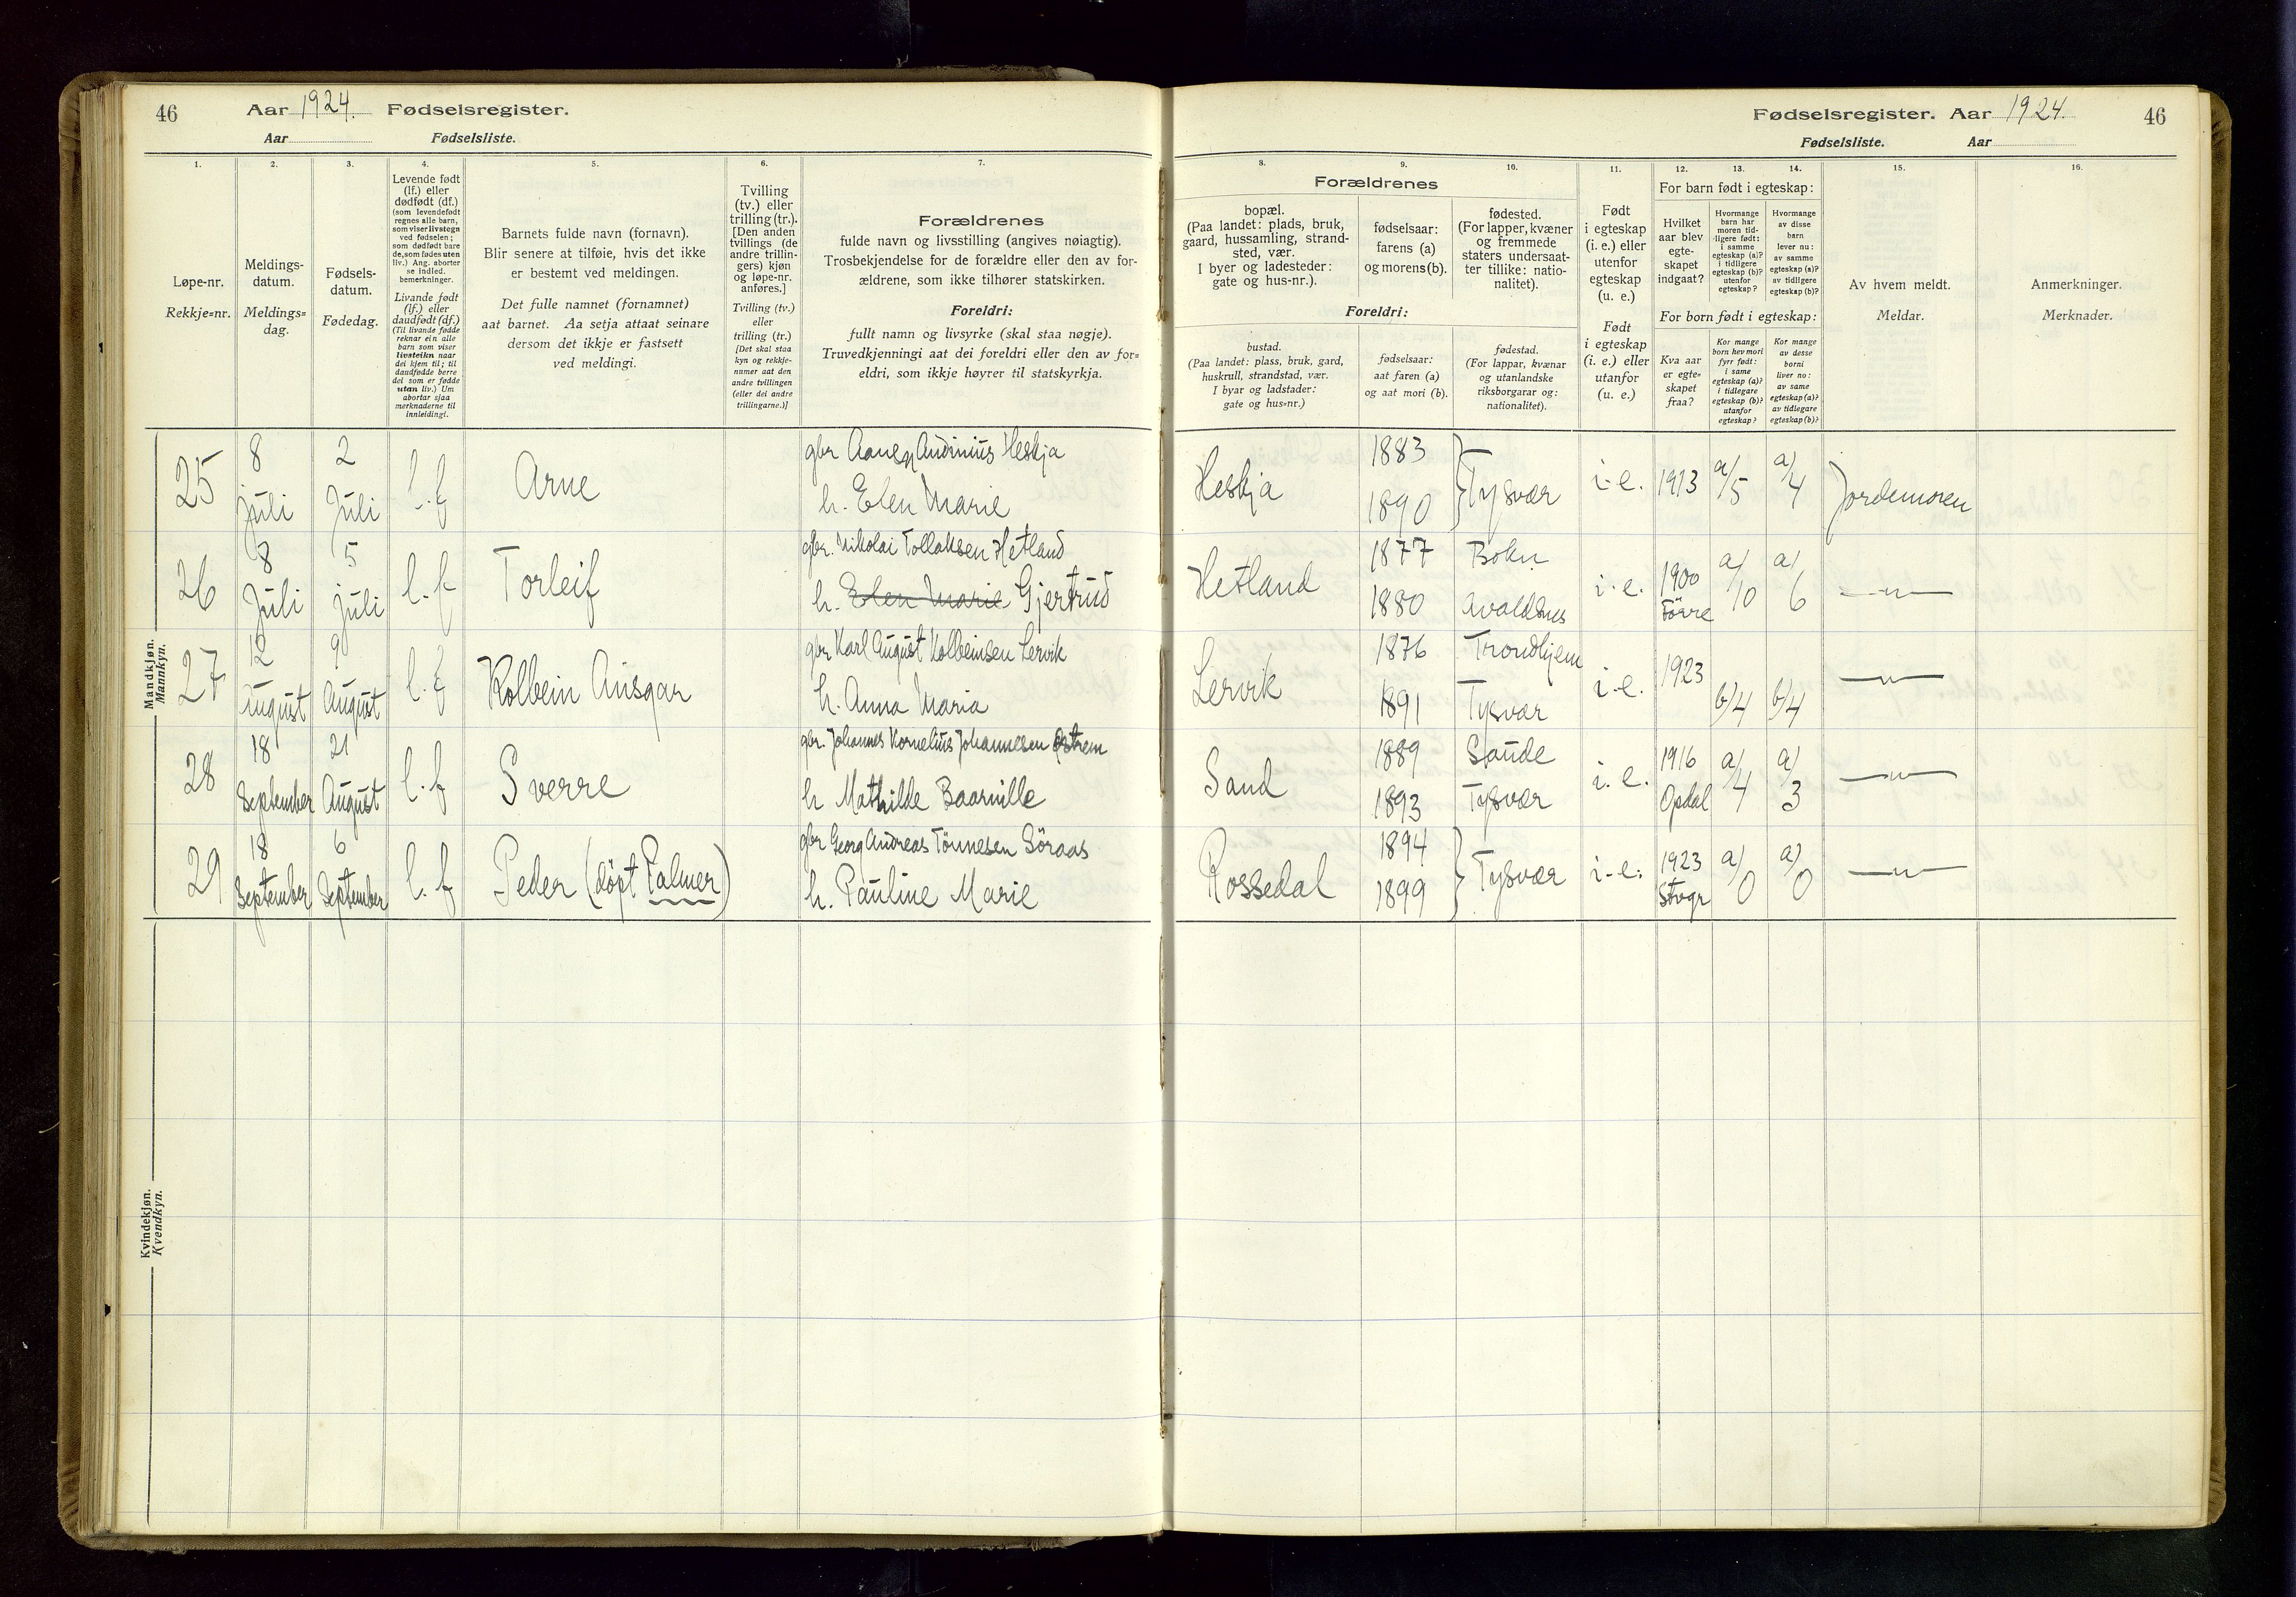 46 Aar 1924. Fødselsregister.
Aar Fødselsliste.
Fødselsregister. Aar 1924. 46
Fødselsliste. Aar
1.
Løpe-nr.
Rekkje=nr.
2.
Meldings-
datum.
Meldings=
dag.
3.
Fødsels-
datum.
Fødedag.
4.
Levende født
(lf.) eller
dødfødt (df.)
(som levendefødt
regnes alle barn,
som viser livstegn
ved fødselen;
som dødfødt bare
de, som fødes uten
liv.) Ang. aborter
se indled.
bemerkninger.
Livande født
(lf.) eller
daudfødt (df.)
(Til livande fødde
reknar ein alle
barn som viser
livsteikn naar
dei kjem til; til
daudfødde berre
dei som er fødde
utan liv.) Um
abortar sjaa
merknaderne til
innleidingi.
5.
Barnets fulde navn (fornavn).
Blir senere at tilføie, hvis det ikke
er bestemt ved meldingen.
Det fulle namnet (fornamnet)
aat barnet. Aa setja attaat seinare
dersom det ikkje er fastsett
ved meldingi.
6.
Tvilling
(tv.) eller
trilling (tr.).
[Den anden
tvillings (de
andre trillin-
gers) kjøn
og løpe-nr.
anføres.]
Tvilling (tv.)
eller
trilling (tr.)
[Det skal staa
kyn og rekkje-
numer aat den
andre tvillingen
(eller dei andre
trillingarne.)]
7.
Forældrenes
fulde navn og livsstilling (angives nøiagtig).
Trosbekjendelse for de forældre eller den av for-
ældrene, som ikke tilhører statskirken.
Foreldri:
fullt namn og livsyrke (skal staa nøgje).
Truvedkjenningi aat dei foreldri eller den av for=
eldri, som ikkje høyrer til statskyrkja.
Forældrenes
8.
bopæl.
(Paa landet: plads, bruk,
gaard, hussamling, strand-
sted, vær.
I byer og ladesteder:
gate og hus-nr.).
9.
fødselsaar:
farens (a)
og morens (b).
10.
fødested.
(For lapper, kvæner
og fremmede
staters undersaat-
ter tillike: natio-
nalitet).
Foreldri:
bustad.
(Paa landet: plass, bruk, gard,
huskrull, strandstad, vær.
I byar og ladstader:
gate og hus=nr.)
fødselsaar:
aat faren (a)
og aat mori (b).
fødestad.
(For lappar, kvænar
og utanlandske
riksborgarar og:
nationalitet).
11.
Født
i egteskap
(i. e.) eller
utenfor
egteskap
(u. e.)
Født
i egteskap
(i. e.) eller
utanfor
(u. e.)
For barn født i egteskap:
12.
Hvilket
aar blev
egte-
skapet
indgaat?
13.
Hvormange
barn har
moren tid-
ligere født:
i samme
egteskap (a)?
i tidligere
egteskap (b)?
utenfor
egteskap?
14.
Hvormange
av disse
barn
lever nu:
av samme
egteskap (a)?
av tidligere
egteskap (b)?
For born født i egteskap:
Kva aar
er egte=
skapet
fraa?
Kor mange
born hev mori
fyrr født:
i same
egteskap (a)?
i tidlegare
egteskap (b)?
utanfor
egteskap?
Kor mange
av desse
borni
liver no:
av same
egteskap (a)?
av tidlegare
egteskap (b)?
15.
Av hvem meldt.
Meldar.
16.
Anmerkninger.
Merknader.
Mandkjøn.
Mannkyn.
25 8 juli 2 Juli l.f Arne
gbr Aanen Audinius Heskja
h. Elen Marie
Heskja 1883 1890 Tysvær i.e. 1913 a/5 a/4 Jordemoren
26 8 Juli 5 juli l.f Torleif
gbr. Nikolai Tollaksen Hetland
h. Elen Marie Gjertrud
Hetland 1877 Bokn 1880 Avaldsnes i.e. 1900 Førre a/10 a/6 —"—
27 12 August 9 August l.f Kolbein Ansgar
gbr Karl August Kolbeinsen Lervik
h. Anna Maria
Lervik 1876 Trondhjem 1891 Tysvær i.e. 1923 b/4 b/4 —"—
28 18 September 21 August l.f Sverre
gbr. Johannes Kornelius Johannesen Østrem
h Mathilde Baarnille
Sand 1889 Saude 1893 Tysvær i.e. 1916 Opdal a/4 a/3 —"—
29 18 September 6 September l.f Peder (døpt Palmer)
gbr Georg Andreas Tønnesen Søraas
h. Pauline Marie
Rossedal 1894 1899 Tysvær i.e. 1923 Stvgr a/0 a/0 —"—
Kvindekjøn.
Kvendkyn.